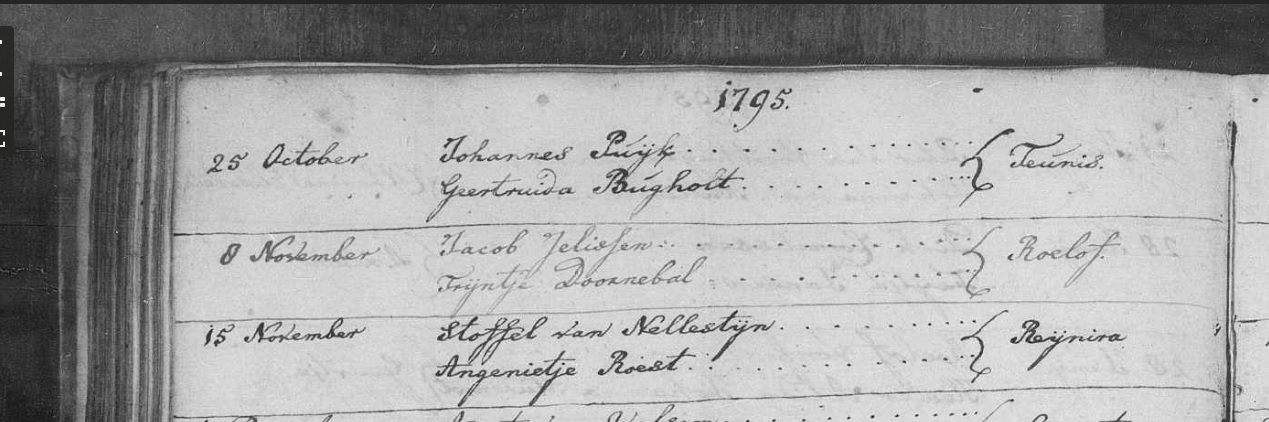 1795.
25 October Johannes Puijk Teunis.
Geertruida Bugholt
8 November Jacob Jelissen Roelof.
Trijntje Doornebal
15 November Stoffel van Nellestijn Reijnira
Angenietje Roest